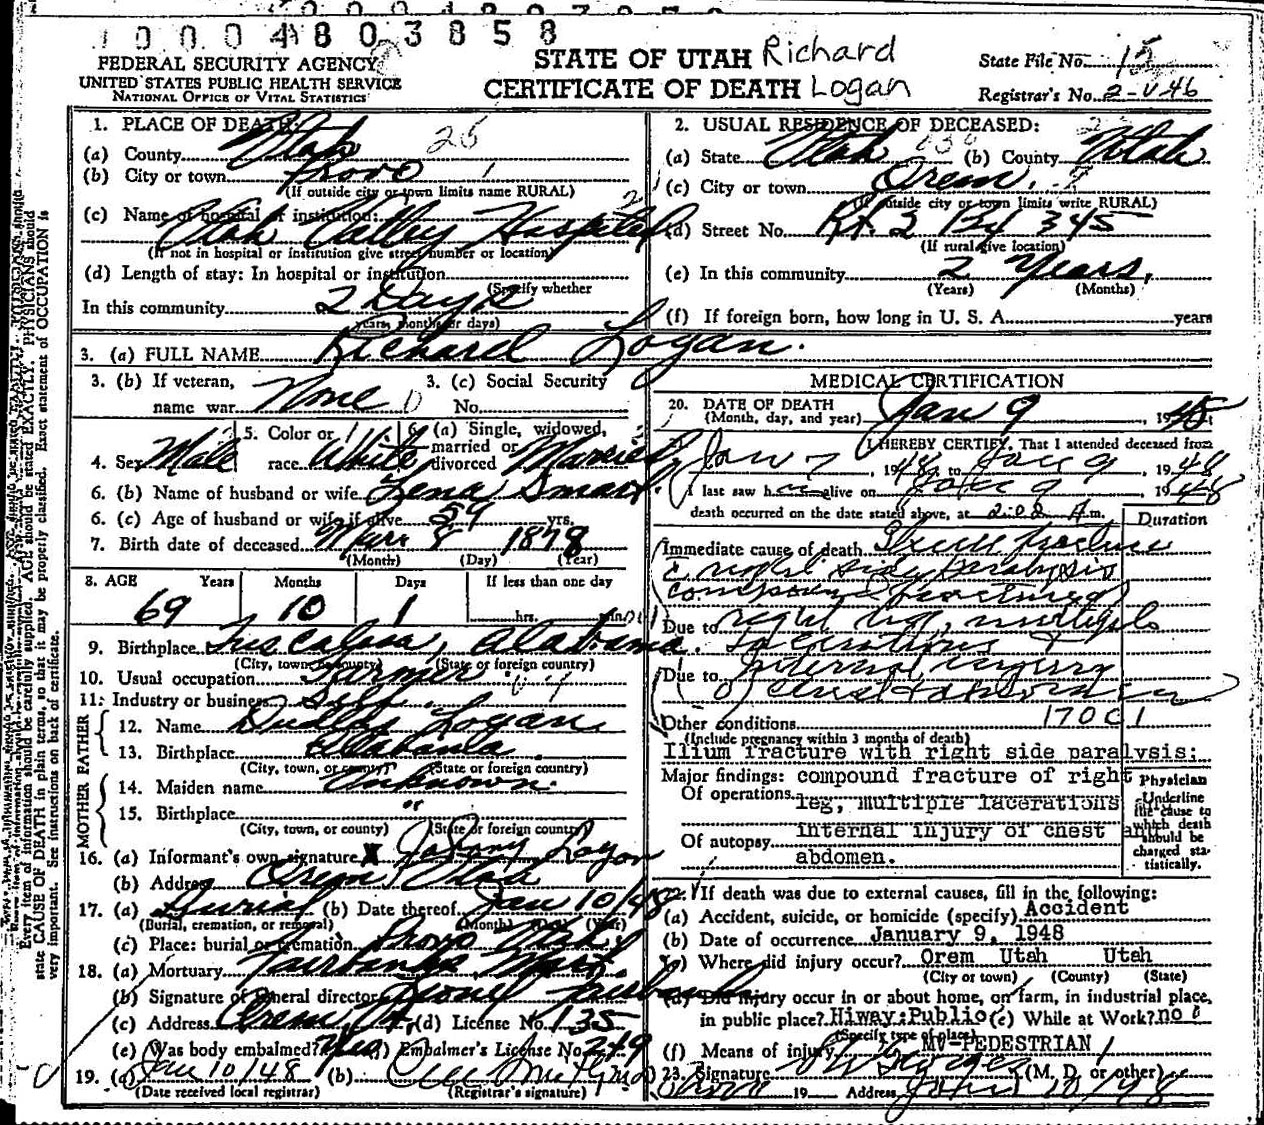 1000480 3858
FEDERAL SECURITY AGENCY
UNITED STATES PUBLIC HEALTH SERVICE
NATIONAL OFFICE OF VITAL STATISTICS
STATE OF UTAH Richard
CERTIFICATE OF DEATH Logan
State File No. 15
Registrar's No. 2-V46
1. PLACE OF DEATH: 25
(a) County Utah
(b) City or town Provo
(If outside city or town limits name RURAL)
(c) Name of hospital or institution:
Utah Valley Hospital
(If not in hospital or institution give street number or location)
(d) Length of stay: In hospital or institution
(Specify whether
In this community 2 Days
years, months or days)
2. USUAL RESIDENCE OF DECEASED:
(a) State Utah (b) County Utah
(c) City or town Orem.
(If outside city or town limits write RURAL)
(d) Street No. Rt. 2 Bx 345
(If rural give location)
(e) In this community 2 Years,
(Years) (Months)
(f) If foreign born, how long in U. S. A. years
3. (a) FULL NAME Richard Logan.
3. (b) If veteran,
name war None
3. (c) Social Security
No.
4. Sex Male
5. Color or
race White
6. (a) Single, widowed,
married or
divorced Married
6. (b) Name of husband or wife Lena Smart
6. (c) Age of husband or wife if alive 59 yrs.
7. Birth date of deceased Mar. 8 1878
(Month) (Day) (Year)
8. AGE Years Months Days If less than one day
69 10 1 hrs. min.
9. Birthplace Tuscalosa, Alabama.
(City, town or county) (State or foreign country)
10. Usual occupation Farmer
11. Industry or business Self
FATHER
12. Name Dudley Logan
13. Birthplace Alabama
(City, town, or county) (State or foreign country)
MOTHER
14. Maiden name Unknown.
15. Birthplace "
(City, town, or county) (State or foreign country)
16. (a) Informant's own signature X Johnny Logan
(b) Address Orem Utah
17. (a) Burial (b) Date thereof Jan 10/48
(Burial, cremation, or removal) (Month) (Day) (Year)
(c) Place: burial or cremation Provo Utah
18. (a) Mortuary Fairbanks Mort.
(b) Signature of funeral director
(c) Address Orem, Ut. (d) License No. 135
(e) Was body embalmed? Yes (f) Embalmer's License No. 249
19. (a) Jan 10/48 (b)
(Date received local registrar) (Registrar's signature)
MEDICAL CERTIFICATION
20. DATE OF DEATH
(Month, day, and year) Jan 9 , 1948
I HEREBY CERTIFY, That I attended deceased from
Jan 7 , 1948, to Jan 9 , 1948
I last saw h alive on Jan 9 , 1948
death occurred on the date stated above, at 2:02 A m.
Duration
Immediate cause of death fracture
right side paralysis
compound fracture
Due to right leg, multiple
lacerations &
Due to internal injury
of chest & abdomen
Other conditions 170C1
(Include pregnancy within 3 months of death)
Ilium fracture with right side paralysis:
Major findings: compound fracture of right
Of operations leg, multiple lacerations
internal injury of chest and
Of autopsy abdomen.
Physician
Underline
the cause to
which death
should be
charged sta-
tistically.
22. If death was due to external causes, fill in the following:
(a) Accident, suicide, or homicide (specify) Accident
(b) Date of occurrence January 9, 1948
(c) Where did injury occur? Orem Utah Utah
(City or town) (County) (State)
(d) Did injury occur in or about home, on farm, in industrial place,
in public place? Hiway:Public (e) While at Work? no
(Specify type of place)
(f) Means of injury MV-PEDESTRIAN
23. Signature (M. D. or other)
Provo 19 Address Jan 10/48
Every item of information should be carefully supplied. AGE should be stated EXACTLY. PHYSICIANS should
state CAUSE OF DEATH in plain terms, so that it may be properly classified. Exact statement of OCCUPATION is
very important. See instructions on back of certificate.